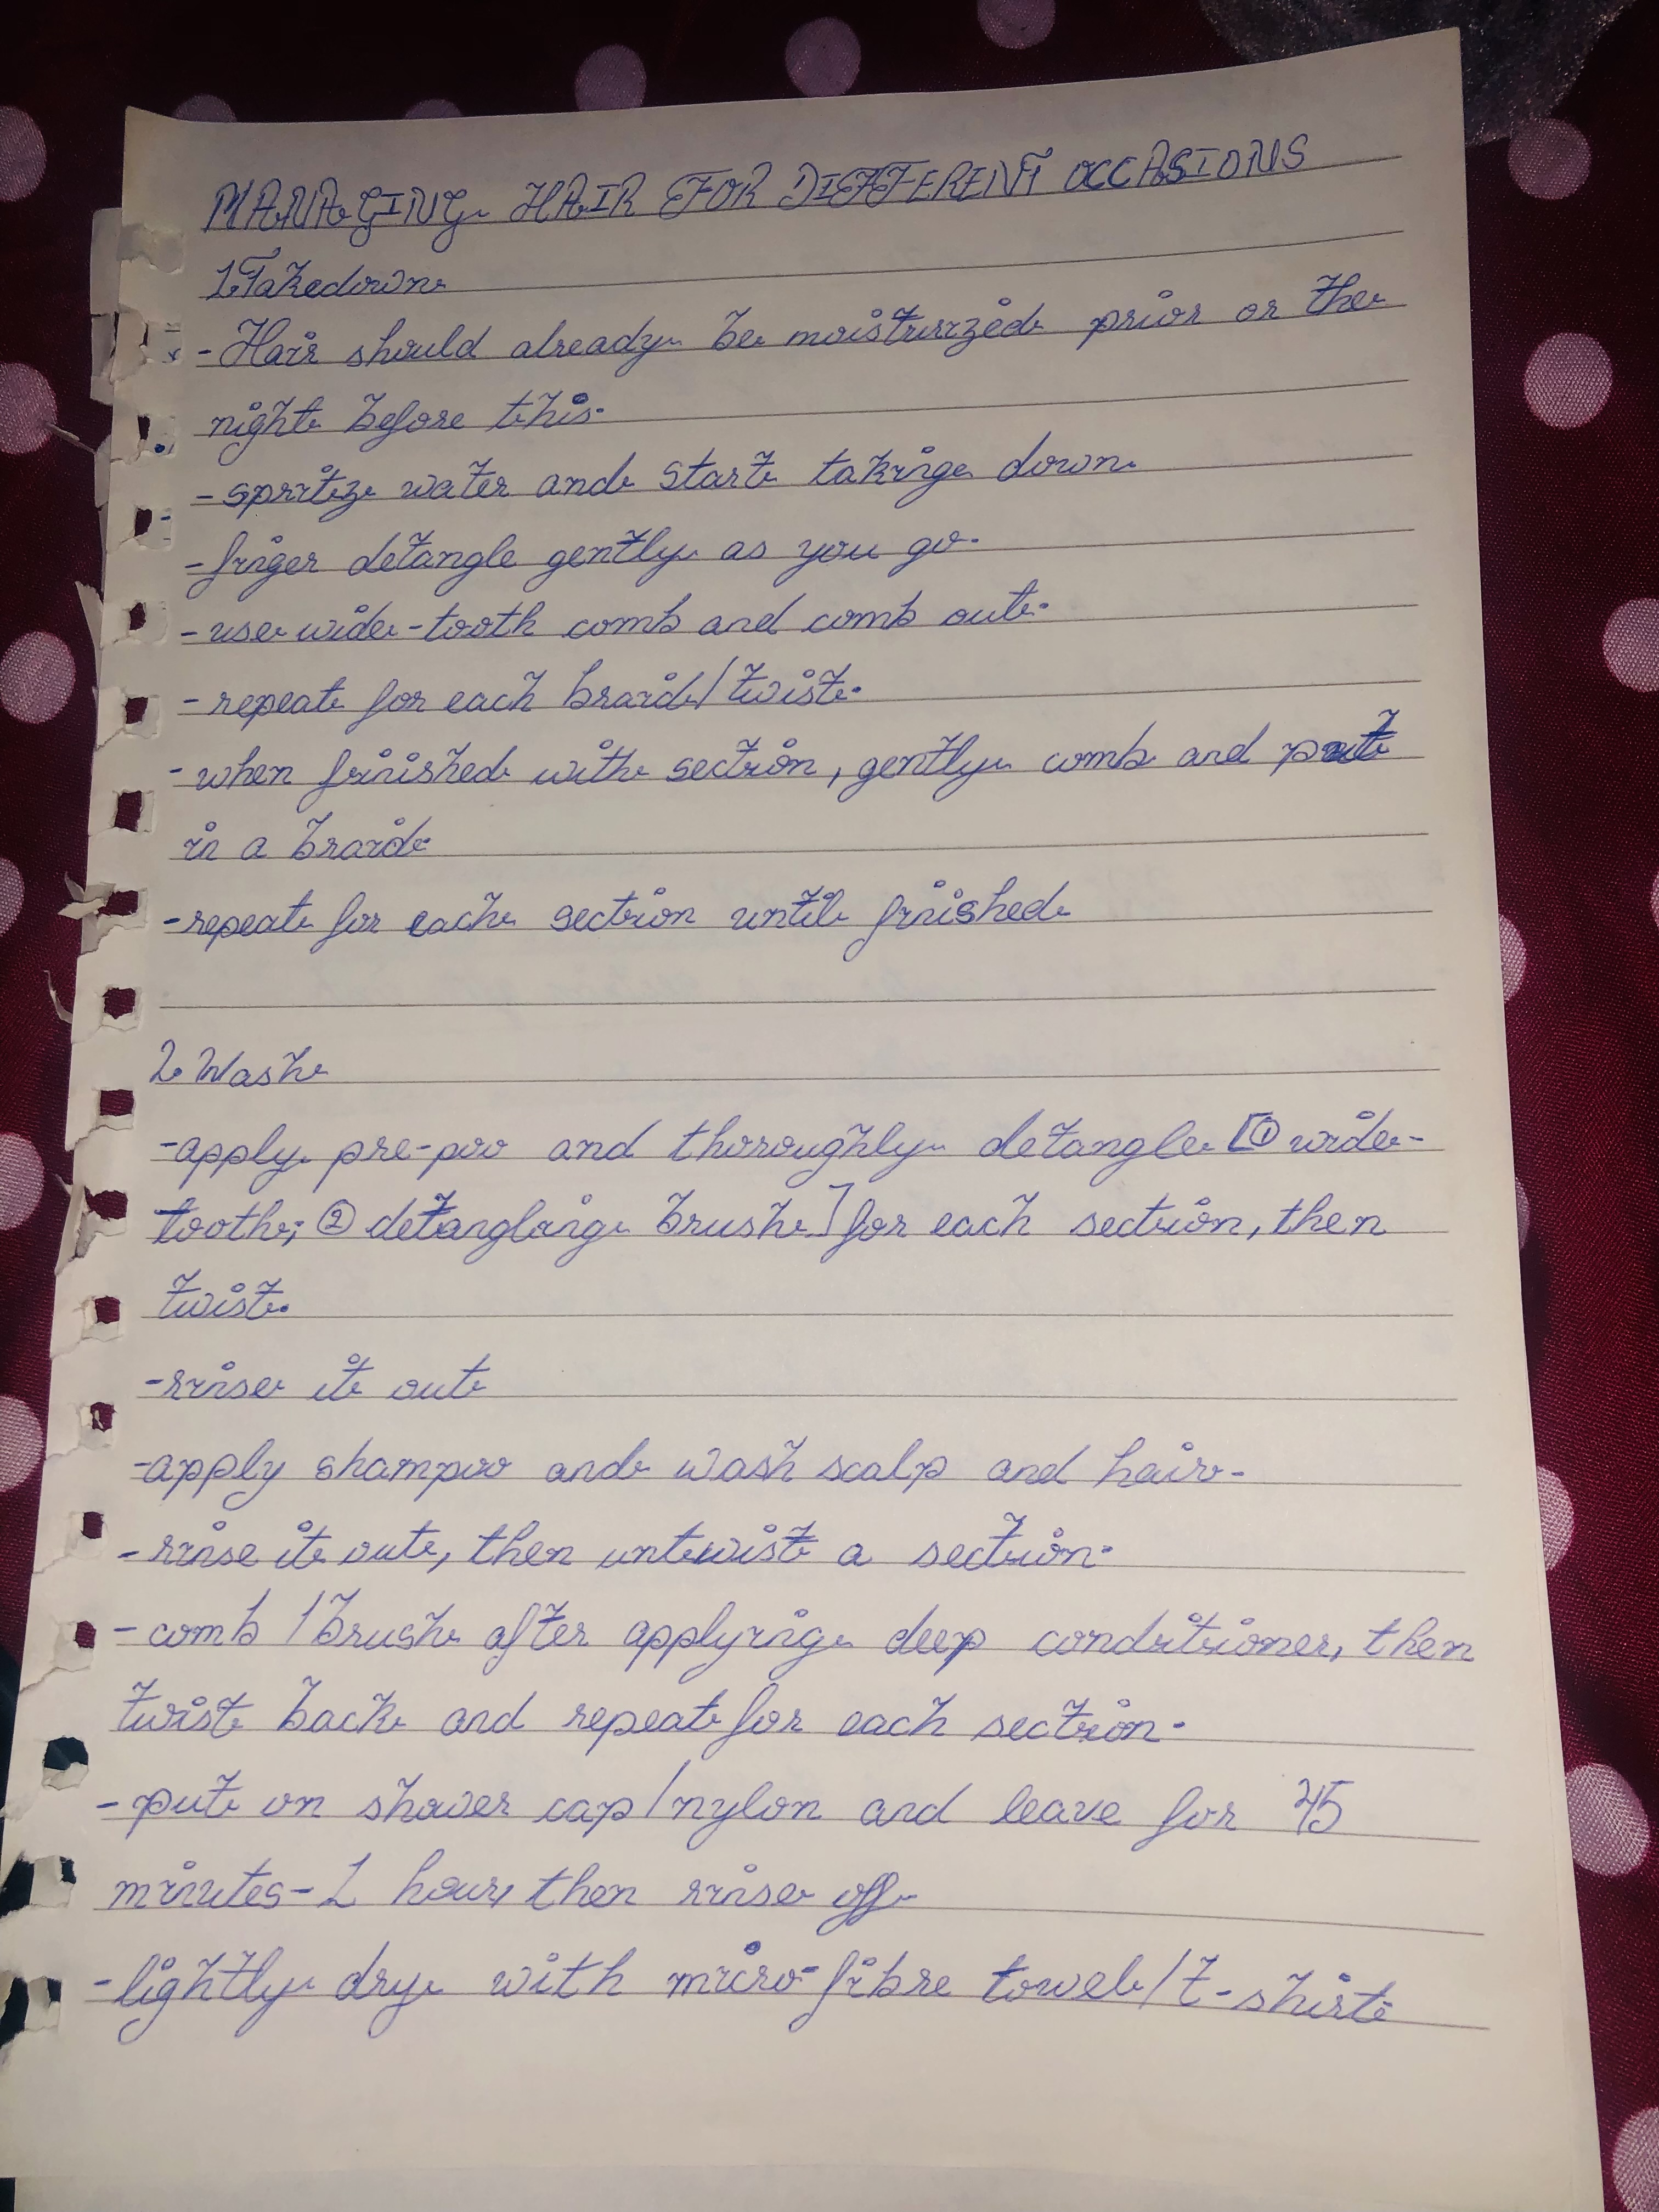 MANAGING HAIR FOR DIFFERENT OCCASIONS
1. Takedown
- Hair should already be moisturized prior or the
night before this.
- spritz water and start taking down.
- finger detangle gently as you go.
- use wide-tooth comb and comb out.
- repeat for each braid/twist.
- when finished with section, gently comb and put
in a braid.
- repeat for each section until finished
2. Wash
- apply pre-poo and thoroughly detangle [① wide-
tooth; ② detangling brush] for each section, then
twist.
- rinse it out
- apply shampoo and wash scalp and hair.
- rinse it out, then untwist a section.
- comb / brush after applying deep conditioner, then
twist back and repeat for each section.
- put on shower cap/nylon and leave for 45
minutes - 1 hour, then rinse off
- lightly dry with micro-fibre towel/t-shirt